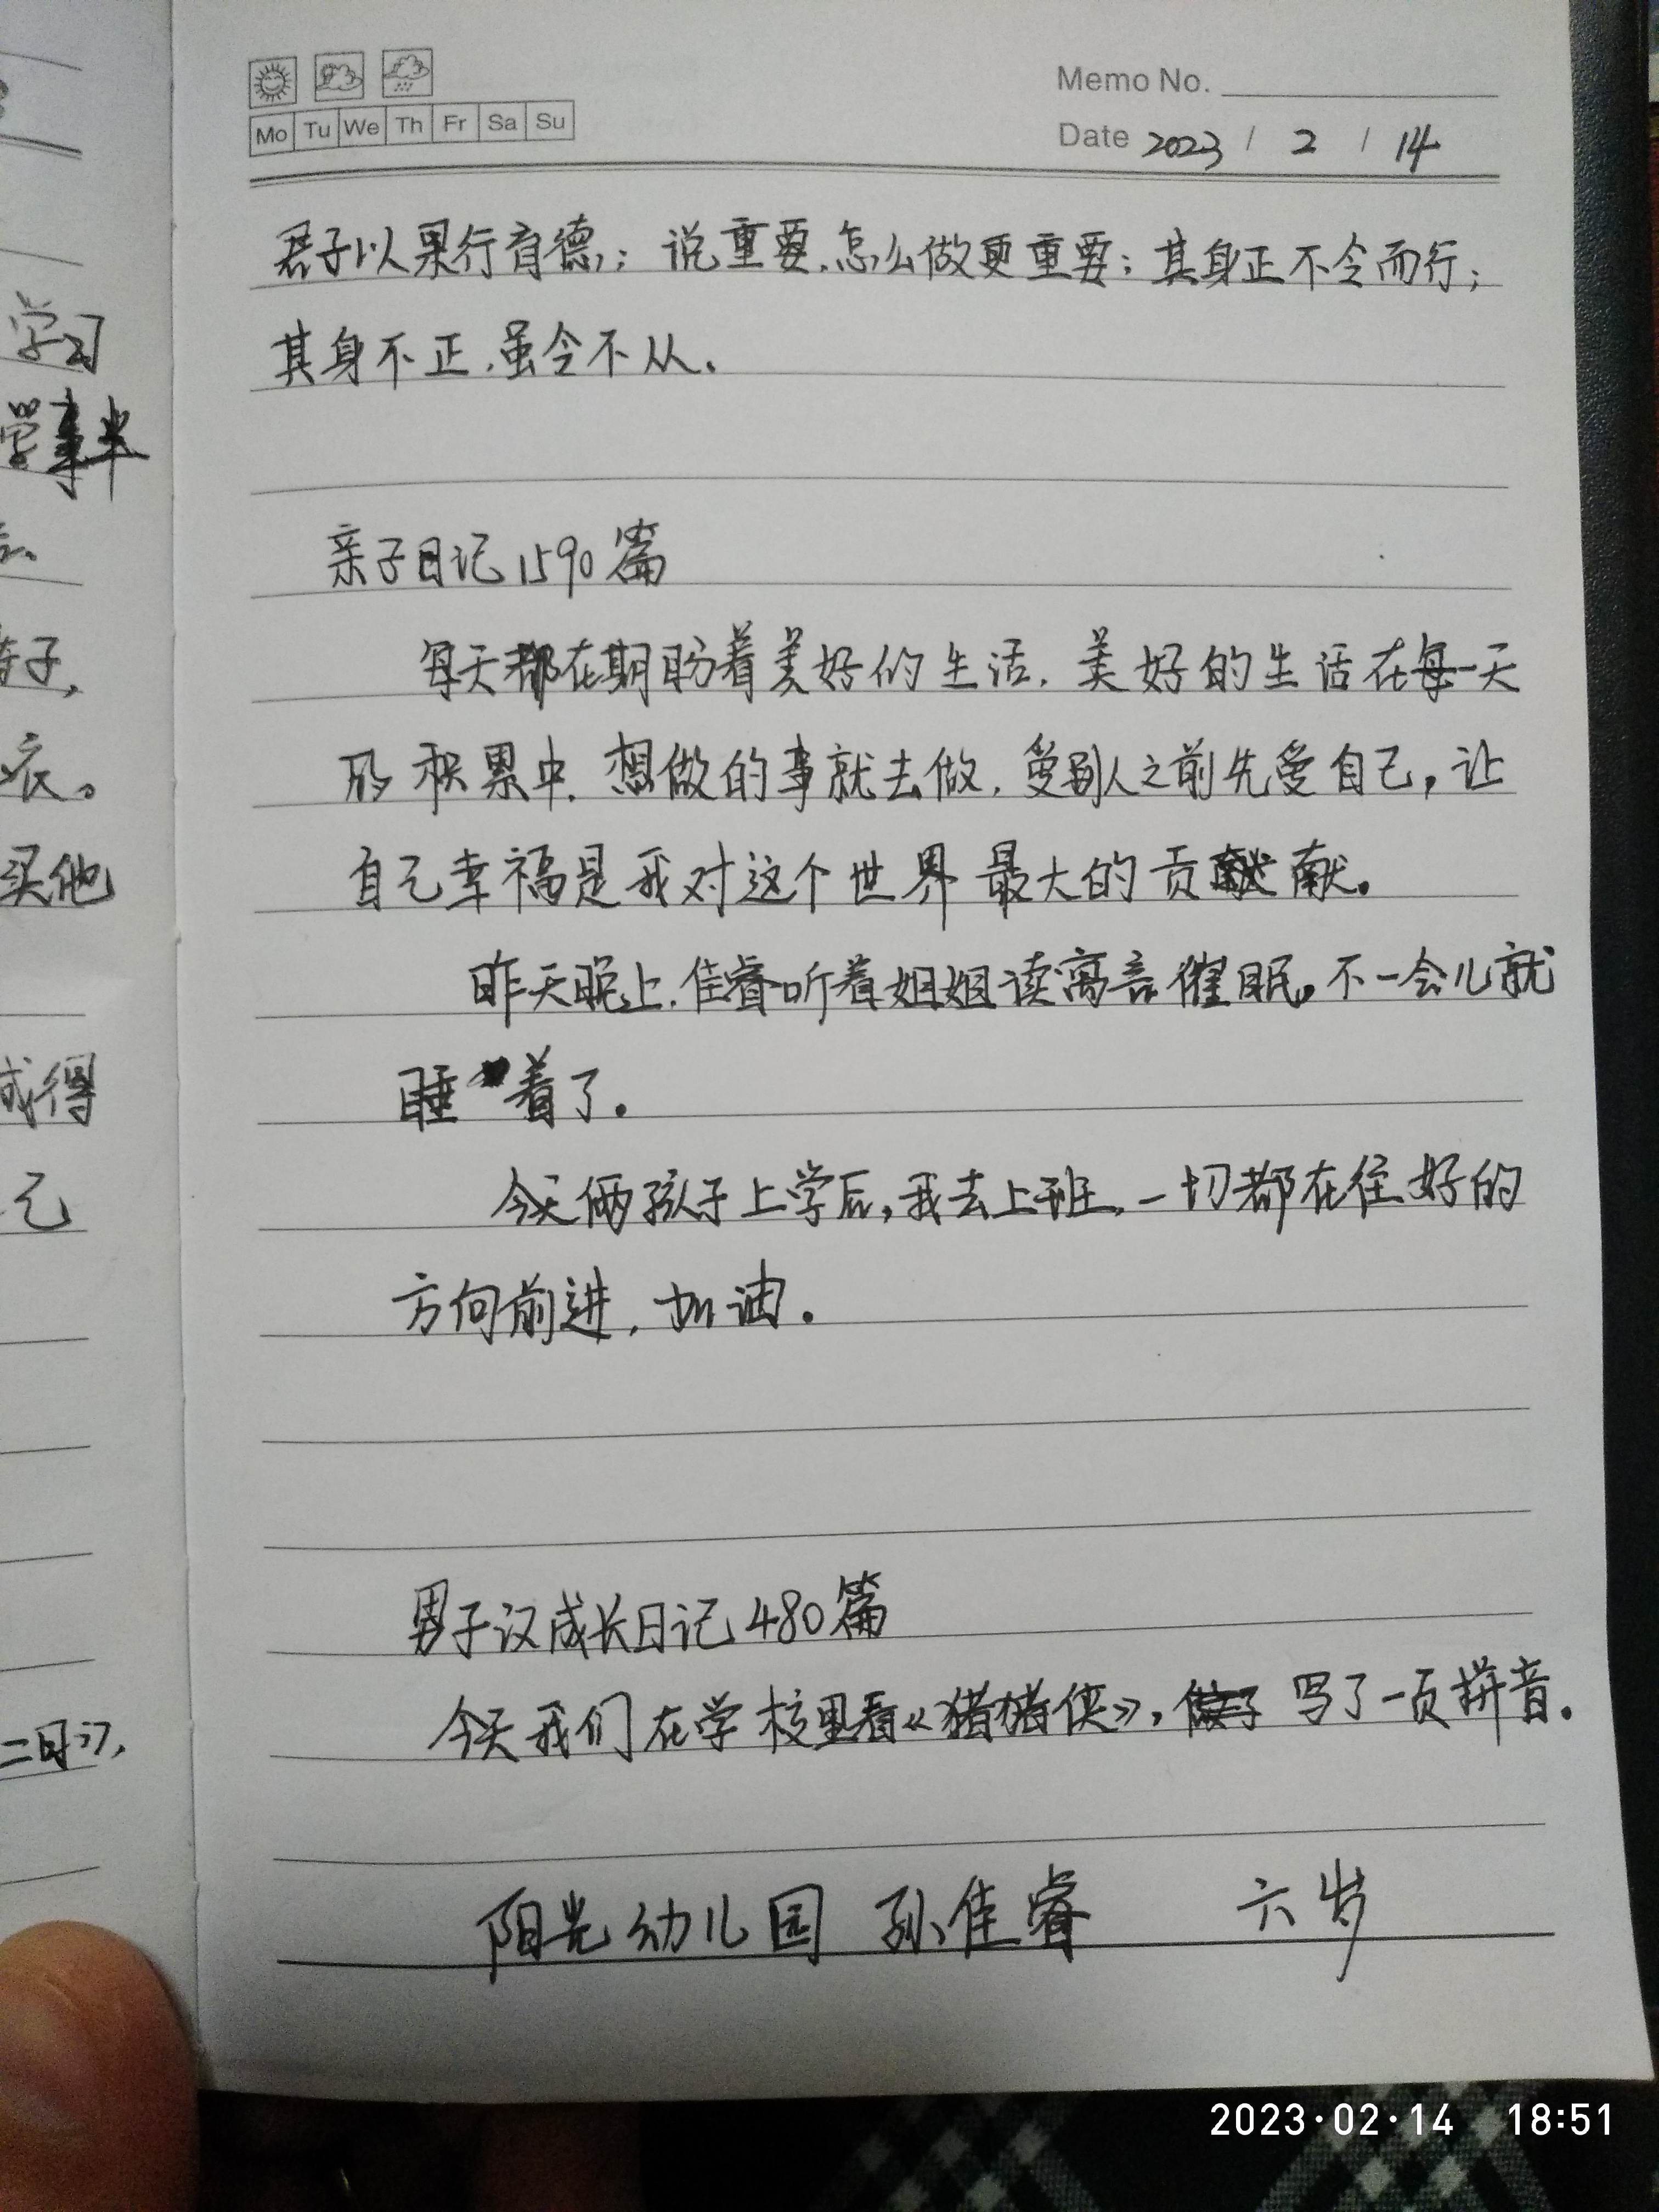 Memo No.
Mo Tu We Th Fr Sa Su
Date 2023 / 2 / 14
君子以果行育德；说重要，怎么做更重要；其身正不令而行；
其身不正，虽令不从。
亲子日记1590篇
每天都在期盼着美好的生活，美好的生活在每一天
的积累中，想做的事就去做，爱别人之前先爱自己，让
自己幸福是我对这个世界最大的贡献。
昨天晚上，佳睿听着姐姐读寓言催眠，不一会儿就
睡着了。
今天俩孩子上学后，我去上班，一切都在往好的
方向前进，加油。
男子汉成长日记480篇
今天我们在学校里看《猪猪侠》，写了一页拼音。
阳光幼儿园 孙佳睿 六岁
学习
学事半
子，
衣。
买他
成得
己
二日记，
2023·02·14 18:51